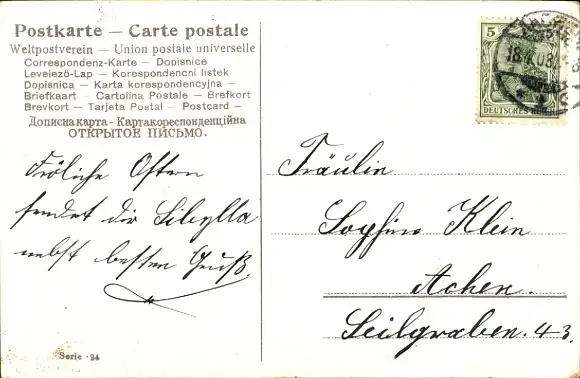 Postkarte — Carte postale
Weltpostverein — Union postale universelle
Correspondenz-Karte — Dopisnice
Levelező-Lap — Korespondencni listek
Dopisnica — Karta korespondencyjna —
Briefkaart — Cartolina Postale — Brefkort
Brevkort — Tarjeta Postal — Postcard —
Дописна карта - Картакореспонденційна
ОТКРЫТОЕ ПИСЬМО.
Fröliche Ostern
sendet dir Sibylla
nebst besten Gruß.
Serie · 24
5
DEUTSCHES REICH
Fräulein
Sophie Klein
Achen.
Seilgraben. 43.